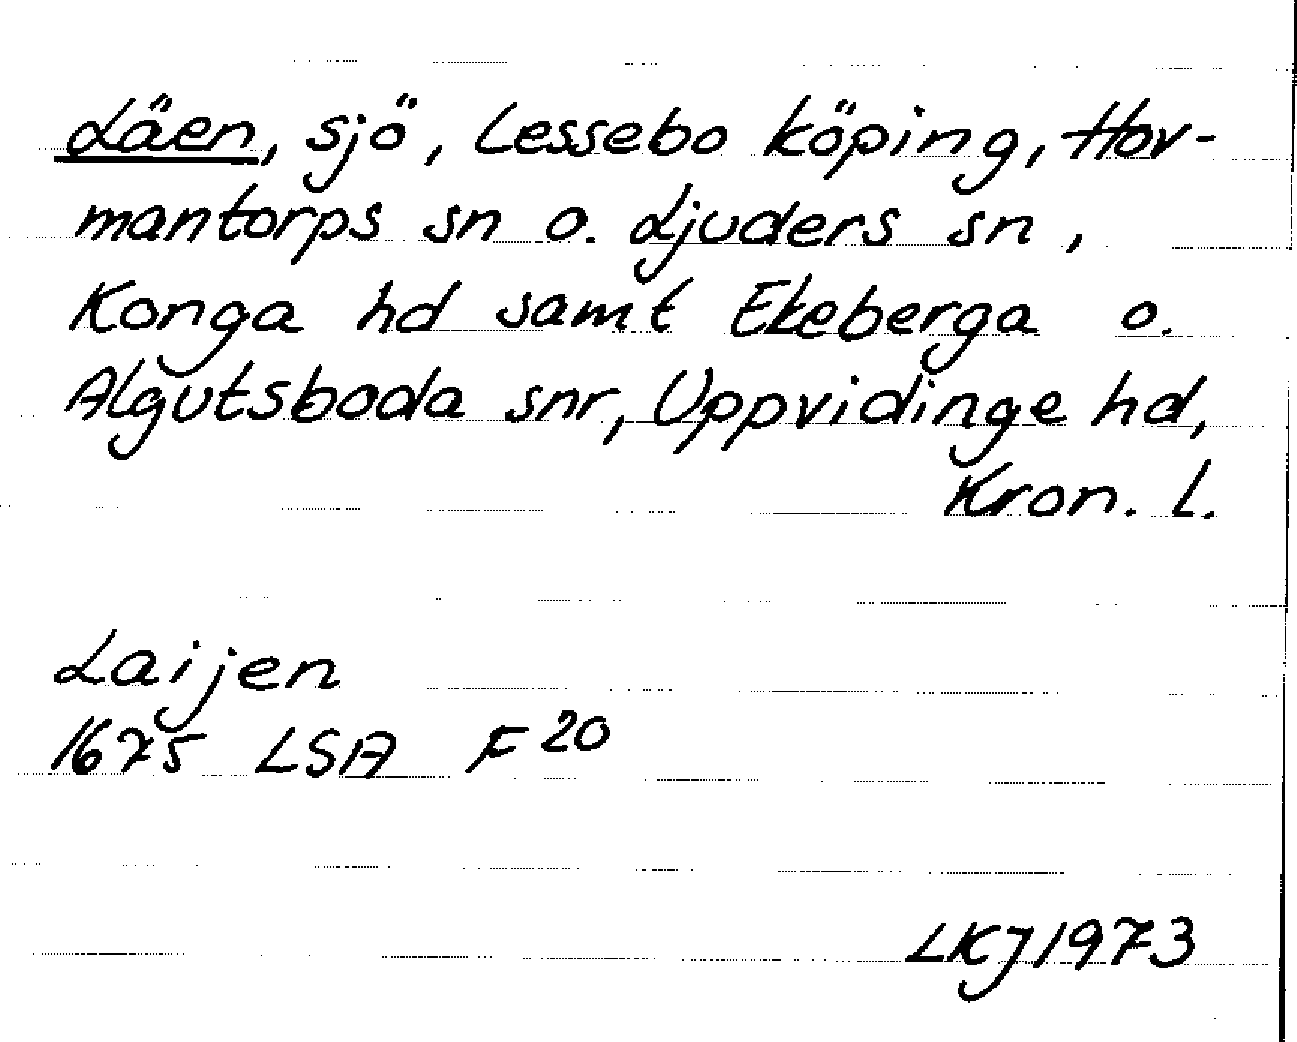 Läen, sjö, Lessebo köping, Hov-
mantorps sn o. Ljuders sn,
Konga hd samt Ekeberga o.
Algutsboda snr, Uppvidinge hd,
Kron. l.
Laijen
1675 LSA F 20
LKJ 1973